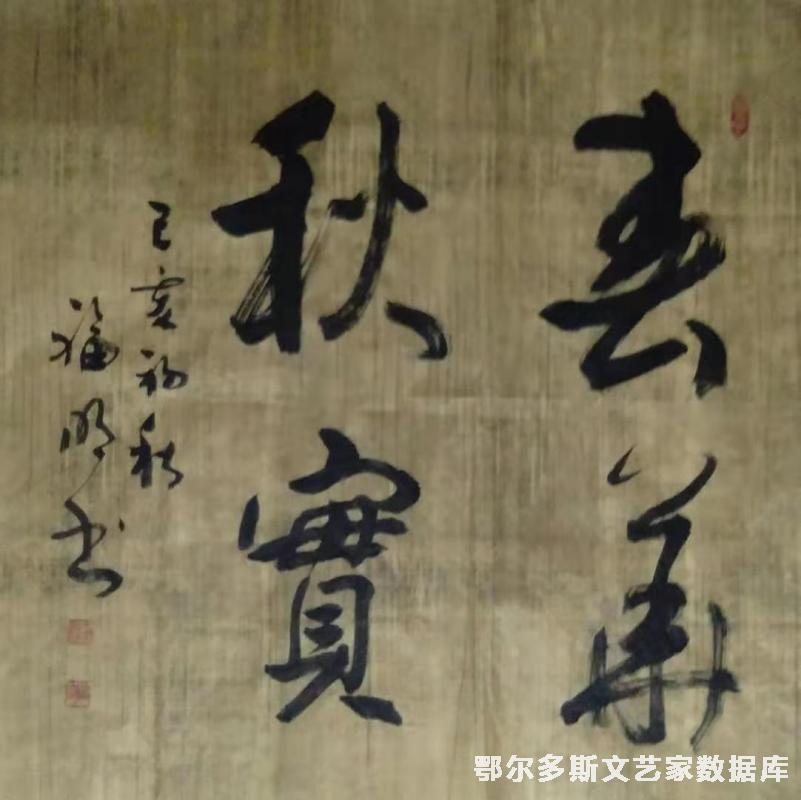 春華
秋實
己亥初秋
福明书
鄂尔多斯文艺家数据库